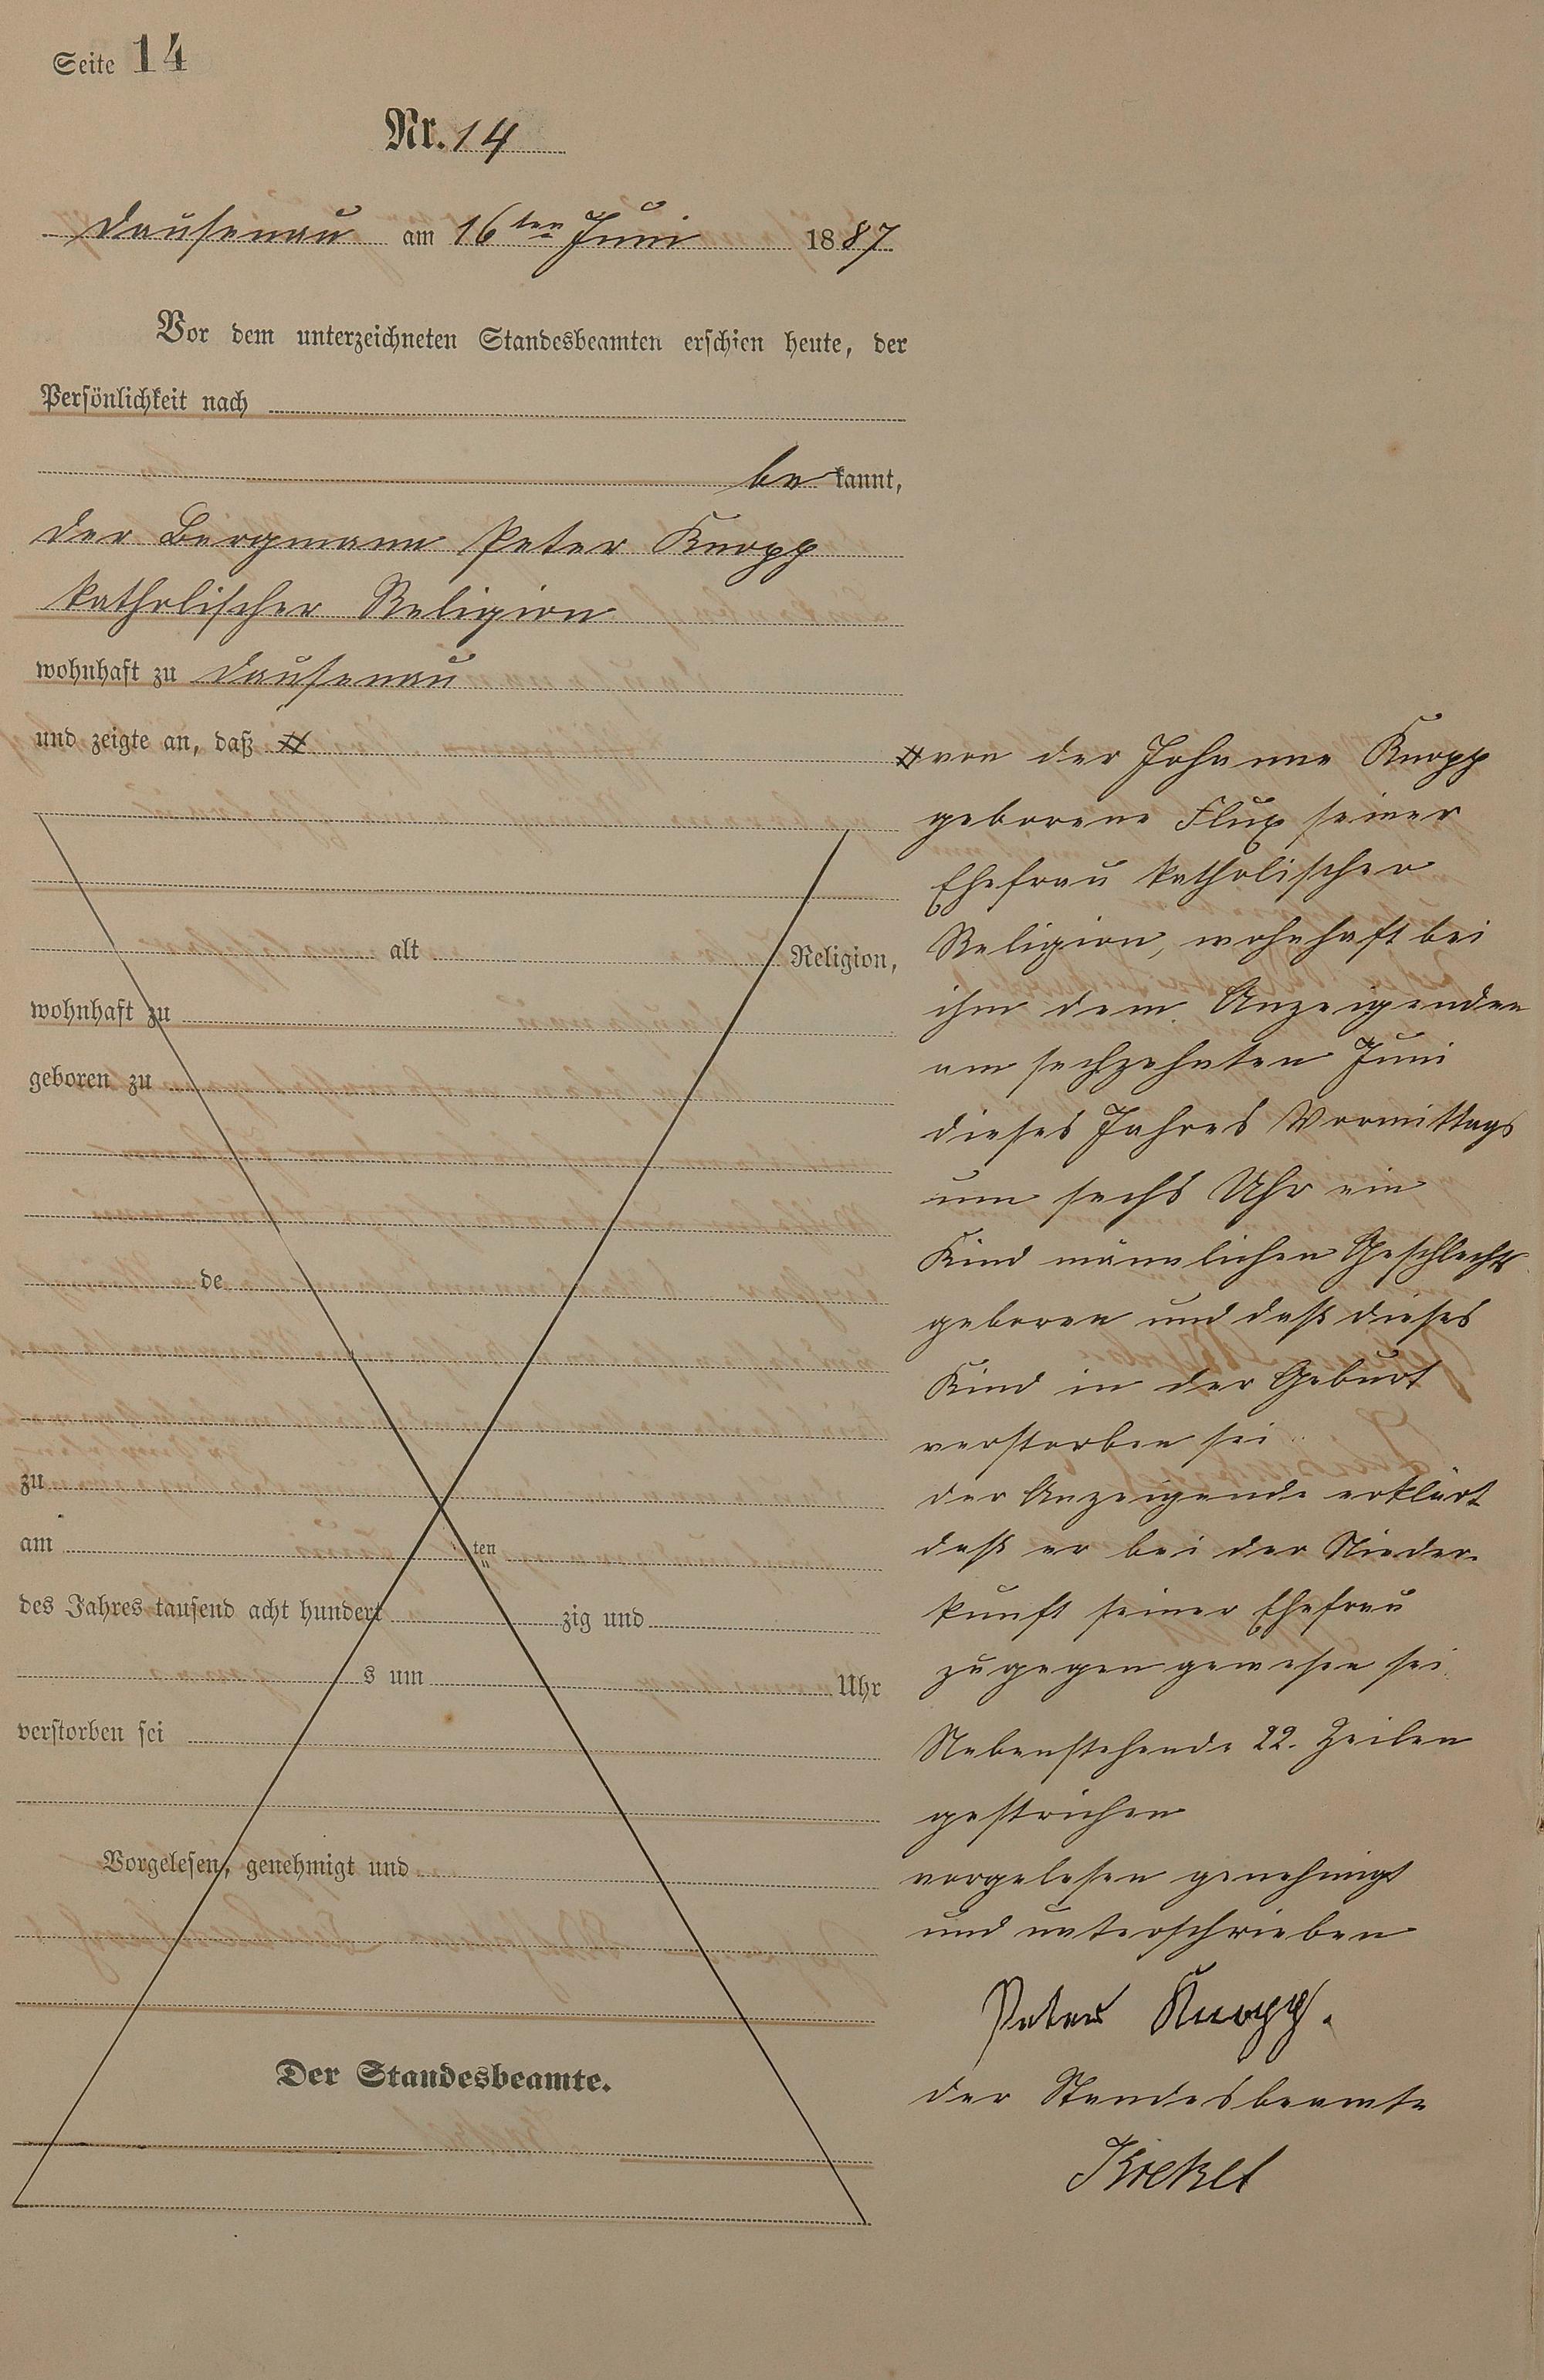 Seite 14
Nr. 14
Dausenau am 16ten Juni 1887
Vor dem unterzeichneten Standesbeamten erschien heute, der
Persönlichkeit nach
be kannt,
der Bergmann Peter Knopp
katholischer Religion
wohnhaft zu Dausenau
und zeigte an, daß #
alt Religion,
wohnhaft zu
geboren zu
de
zu
am ten
des Jahres tausend acht hundert zig und
s um Uhr
verstorben sei
Vorgelesen, genehmigt und
Der Standesbeamte.
# von der Johanne Knopp
geborene Flux seiner
Ehefrau katholischer
Religion, wohnhaft bei
ihm dem Anzeigenden
am sechzehnten Juni
dieses Jahres Vormittags
um sechs Uhr ein
Kind männlichen Geschlechts
geboren und daß dieses
Kind in der Geburt
verstorben sei.
der Anzeigende erklärt
daß er bei der Nieder-
kunft seiner Ehefrau
zugegen gewesen sei
Nebenstehende 22. Zeilen
gestrichen
vorgelesen genehmigt
und unterschrieben
Peter Knopp.
der Standesbeamte